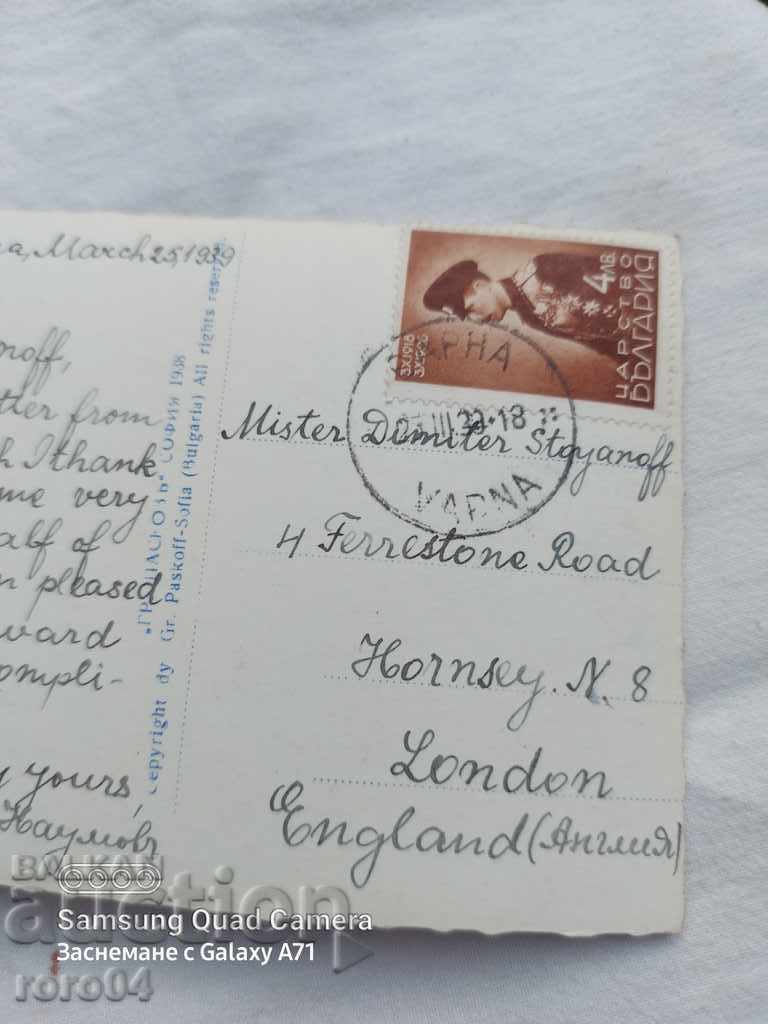 a, March 25, 1939
off,
ther from
h I thank
me very
alf of
n pleased
ward
ompli-
yours,
Наумовъ
"ГР. ПАСКОВЪ" СОФИЯ 1938
Copyright dy Gr. Paskoff-Sofia (Bulgaria) All rights reser
3X1918
3X1938
4 ЛВ.
ЦАРСТВО
БЪЛГАРИЯ
ВАРНА
III.39-18
VARNA
Mister Dimiter Stoyanoff
4 Ferrestone Road
Hornsey. N. 8
London
England (Англия)
БАЛКАН
auction
Samsung Quad Camera
Заснемане с Galaxy A71
roro04